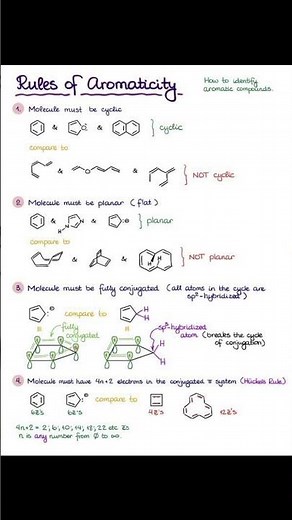 Rules of Aromaticity
How to identify
aromatic compounds.
1. Molecule must be cyclic
& & } cyclic
compare to
& & } NOT cyclic
2. Molecule must be planar (flat)
& & } planar
H
compare to
& & } NOT planar
H H
3. Molecule must be fully conjugated (all atoms in the cycle are
sp²-hybridized)
compare to
H
H
fully
conjugated
sp³-hybridized
atom (breaks the cycle
of conjugation)
4. Molecule must have 4n+2 electrons in the conjugated π system (Hückels Rule)
& compare to &
6ē's 6ē's 4ē's 12ē's
4n+2 = 2; 6; 10; 14; 18; 22 etc ēs
n is any number from 0 to ∞.